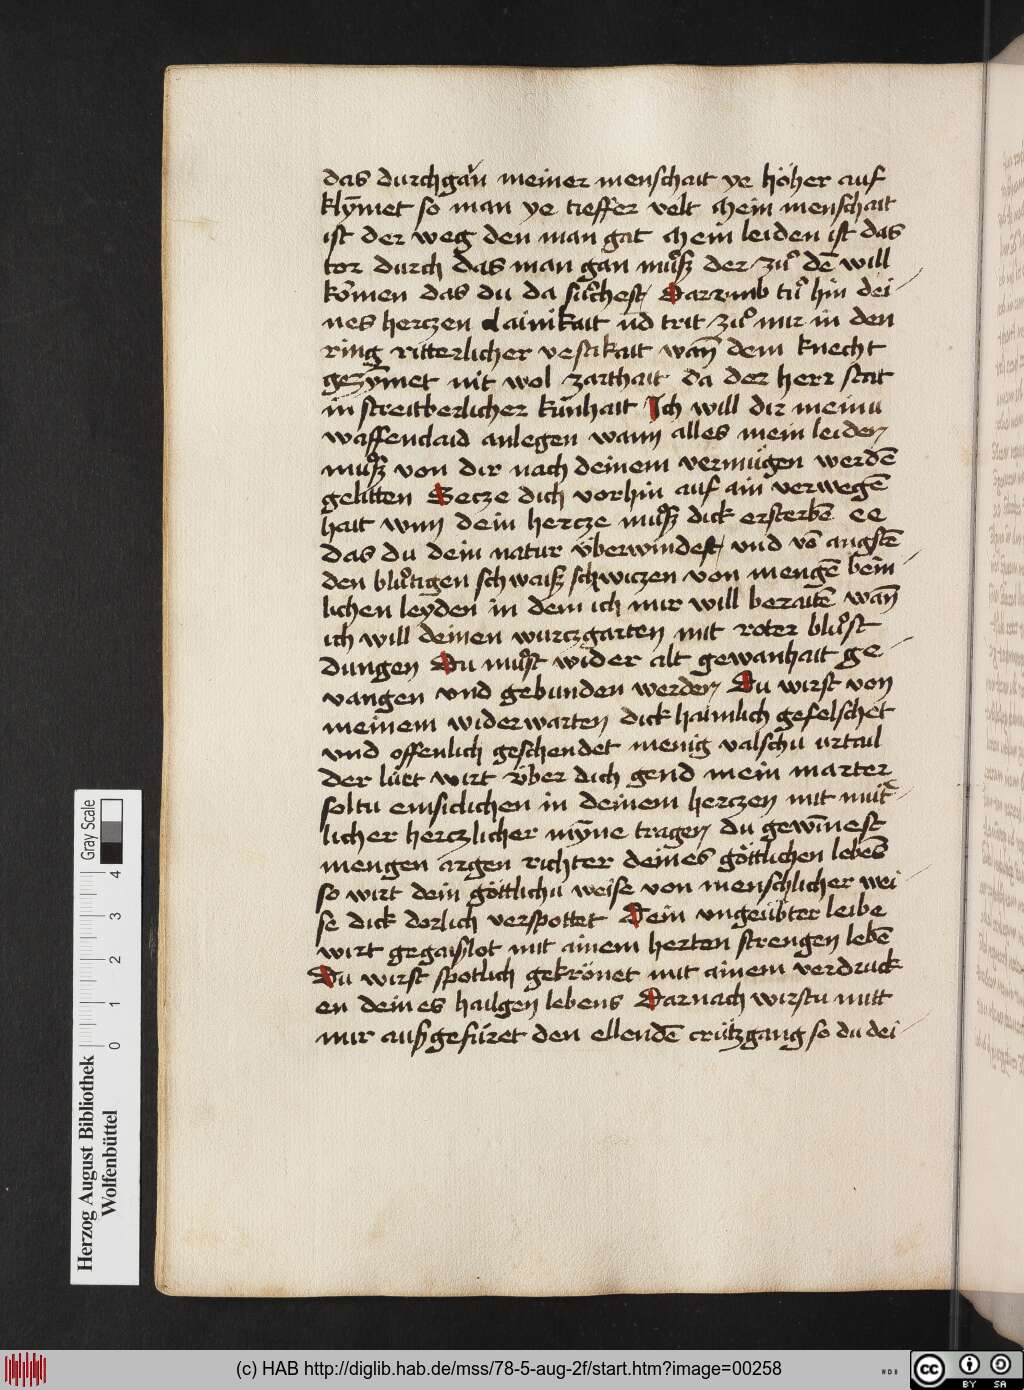 das durchgān meiner menschait ye höher auf
klȳmet so man ye tieffer velt Mein menschait
ist der weg den man gat Mein leiden ist das
tor durch das man gan muͦsz der zuͦ dē will
komen das du da suͦchest Darrumb tuͦ hin dei
nes herczen clainikait vnd trit zuͦ mir in den
ring ritterlicher vestikait wañ dem knecht
gezȳmet nit wol zarthait da der herr stat
in streitberlicher kůnhait Ich will dir meinu
waffenclaid anlegen wann alles mein leiden
muͦsz von dir nach deinem vermügen werdē
gelitten Secze dich vorhin auf ain verwegē
hait wnn dein hercze muͦsz dick ersterbē ee
das du dein natur v̈berwindest vnd vō angstē
den bluͦtigen schwaisz schwiczen von mengē bein
lichen leyden in dem ich mir will beraitē wañ
ich will deinen wurczgarten mit roter bluͦst
dungen Du muͦst wider alt gewanhait ge
vangen vnd gebunden werden Du wirst von
meinem widerwarten dick haimlich gefelschet
vnd offenlich geschendet menig valschu urtail
der lüt wirt v̈ber dich gend mein marter
soltu emsiclichen in deinem herczen mit mütˀ
licher herczlicher mȳne tragen du gewīnest
mengen argen richter deines göttlichen lebēs
so wirt dein göttlichu weise von menschlicher wei
se dick dorlich verspottet Dein vngeübter leibe
wirt gegaislot mit ainem herten strengen lebē
Du wirst spotlich gekrönet mit ainem verdruck
en deines hailgen lebens Darnach wirstu mitt
mir ausgefüret den ellendē crützgang so du dei
Gray Scale
0 1 2 3 4
Herzog August Bibliothek
Wolfenbüttel
(c) HAB http://diglib.hab.de/mss/78-5-aug-2f/start.htm?image=00258
WDB
cc BY SA